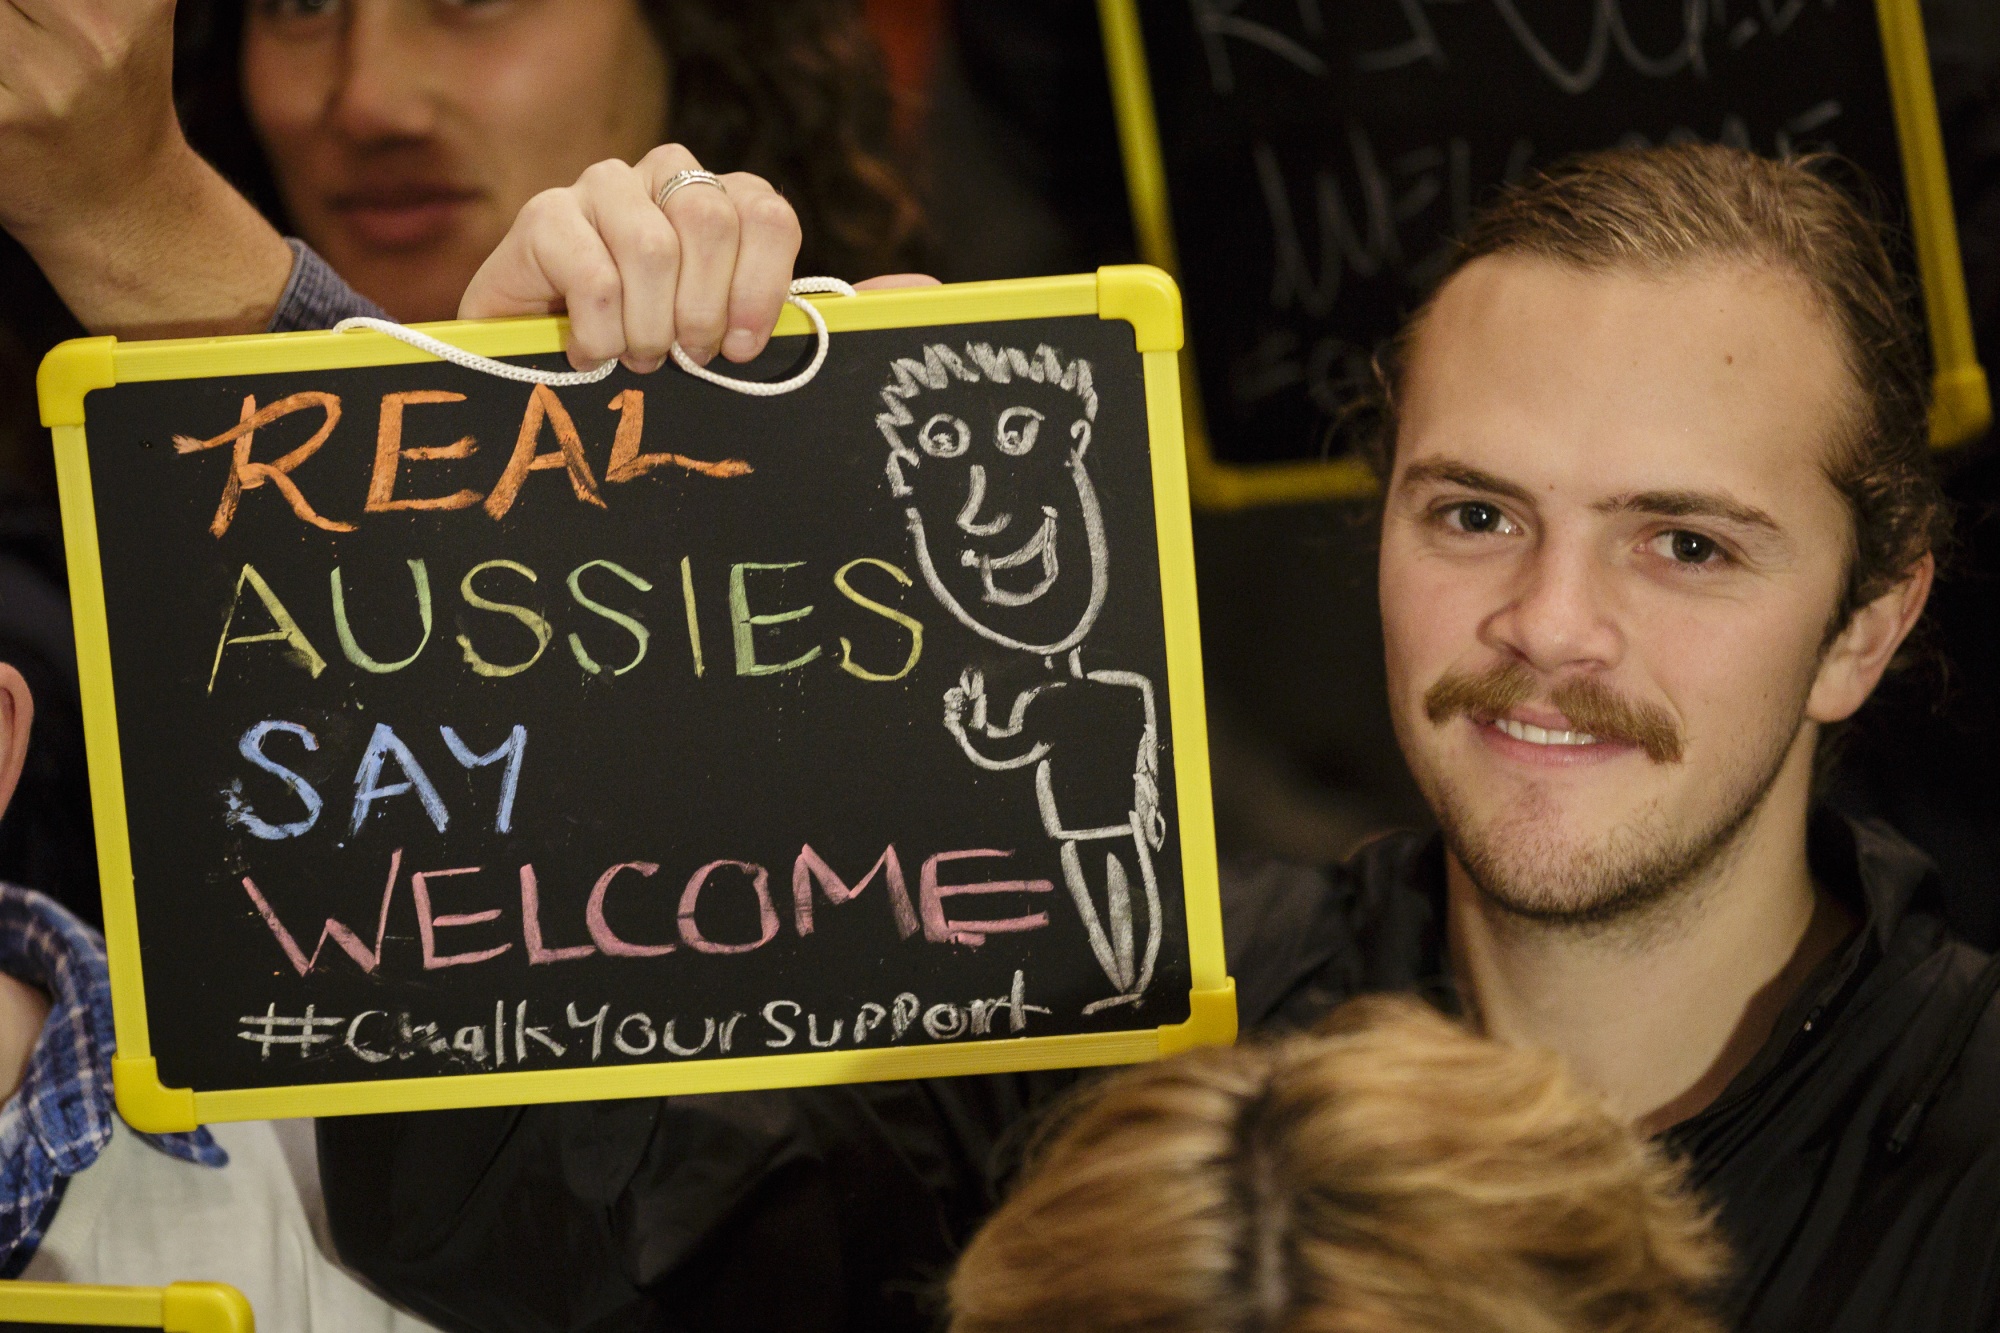 REAL
AUSSIES
SAY
WELCOME
#ChalkYourSupport